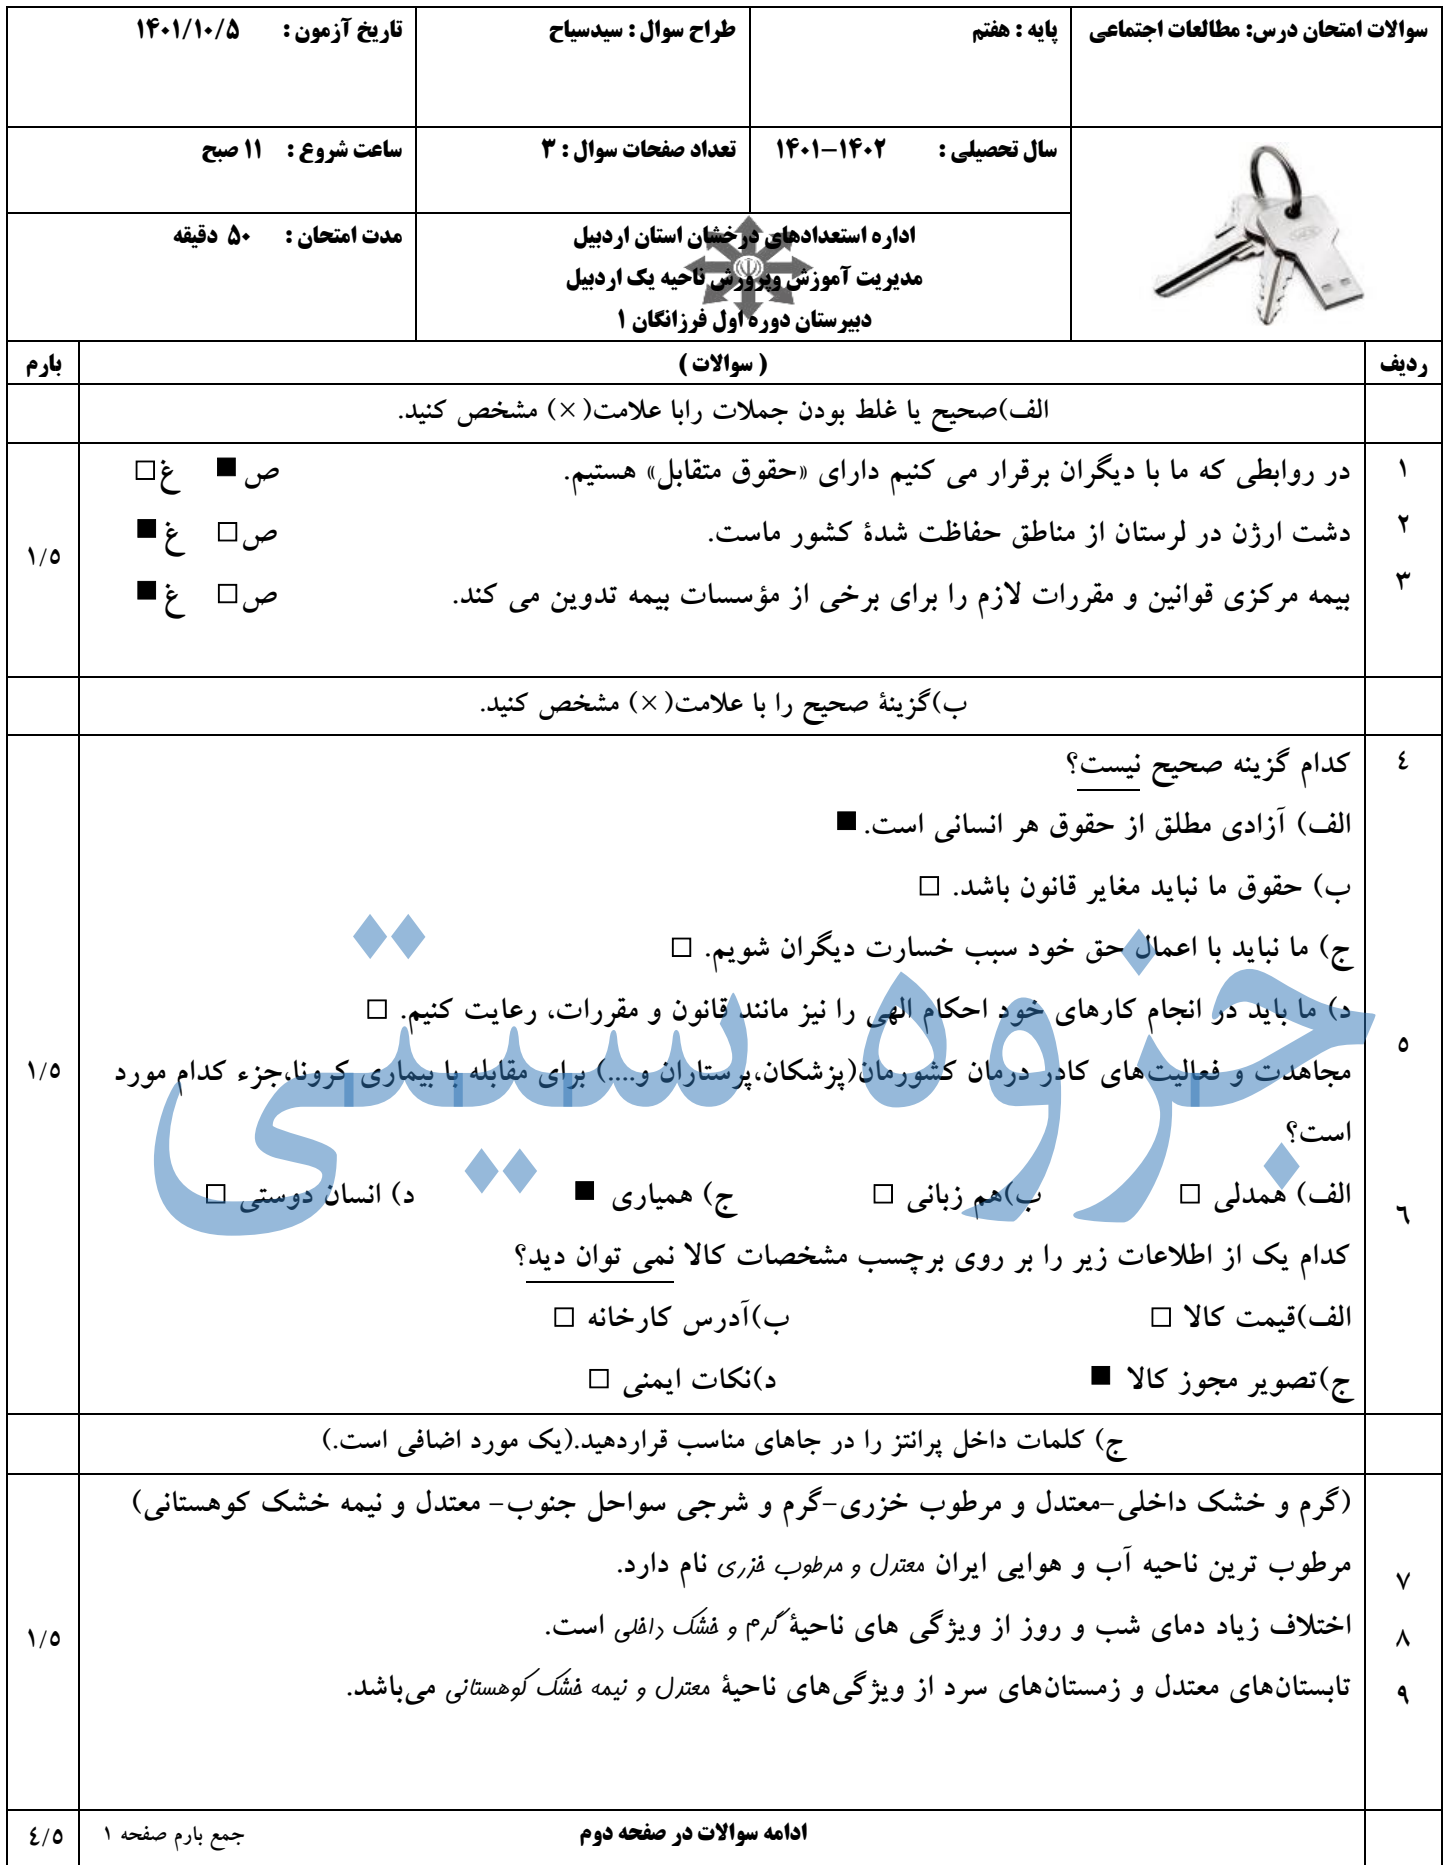 سوالات امتحان درس: مطالعات اجتماعی
پایه : هفتم
طراح سوال : سیدسیاح
تاریخ آزمون : ۱۴۰۱/۱۰/۵
سال تحصیلی : ۱۴۰۲-۱۴۰۱
تعداد صفحات سوال : ۳
ساعت شروع : ۱۱ صبح
اداره استعدادهای درخشان استان اردبیل
مدیریت آموزش وپرورش ناحیه یک اردبیل
دبیرستان دوره اول فرزانگان ۱
مدت امتحان : ۵۰ دقیقه
ردیف ( سوالات ) بارم
الف)صحیح یا غلط بودن جملات رابا علامت(×) مشخص کنید.
۱ در روابطی که ما با دیگران برقرار می کنیم دارای «حقوق متقابل» هستیم. ص■ غ□
۲ دشت ارژن در لرستان از مناطق حفاظت شدۀ کشور ماست. ص□ غ■
۳ بیمه مرکزی قوانین و مقررات لازم را برای برخی از مؤسسات بیمه تدوین می کند. ص□ غ■
۱/۵
ب)گزینۀ صحیح را با علامت(×) مشخص کنید.
٤ کدام گزینه صحیح نیست؟
الف) آزادی مطلق از حقوق هر انسانی است. ■
ب) حقوق ما نباید مغایر قانون باشد. □
ج) ما نباید با اعمال حق خود سبب خسارت دیگران شویم. □
د) ما باید در انجام کارهای خود احکام الهی را نیز مانند قانون و مقررات، رعایت کنیم. □
٥ مجاهدت و فعالیت‌های کادر درمان کشورمان(پزشکان،پرستاران و....) برای مقابله با بیماری کرونا،جزء کدام مورد
است؟
الف) همدلی □ ب)هم زبانی □ ج) همیاری ■ د) انسان دوستی □
٦ کدام یک از اطلاعات زیر را بر روی برچسب مشخصات کالا نمی توان دید؟
الف)قیمت کالا □ ب)آدرس کارخانه □
ج)تصویر مجوز کالا ■ د)نکات ایمنی □
۱/۵
جزوه سیتی
ج) کلمات داخل پرانتز را در جاهای مناسب قراردهید.(یک مورد اضافی است.)
(گرم و خشک داخلی-معتدل و مرطوب خزری-گرم و شرجی سواحل جنوب- معتدل و نیمه خشک کوهستانی)
۷ مرطوب ترین ناحیه آب و هوایی ایران معتدل و مرطوب خزری نام دارد.
۸ اختلاف زیاد دمای شب و روز از ویژگی های ناحیۀ گرم و خشک داخلی است.
۹ تابستان‌های معتدل و زمستان‌های سرد از ویژگی‌های ناحیۀ معتدل و نیمه خشک کوهستانی می‌باشد.
۱/۵
ادامه سوالات در صفحه دوم جمع بارم صفحه ۱ ٤/٥